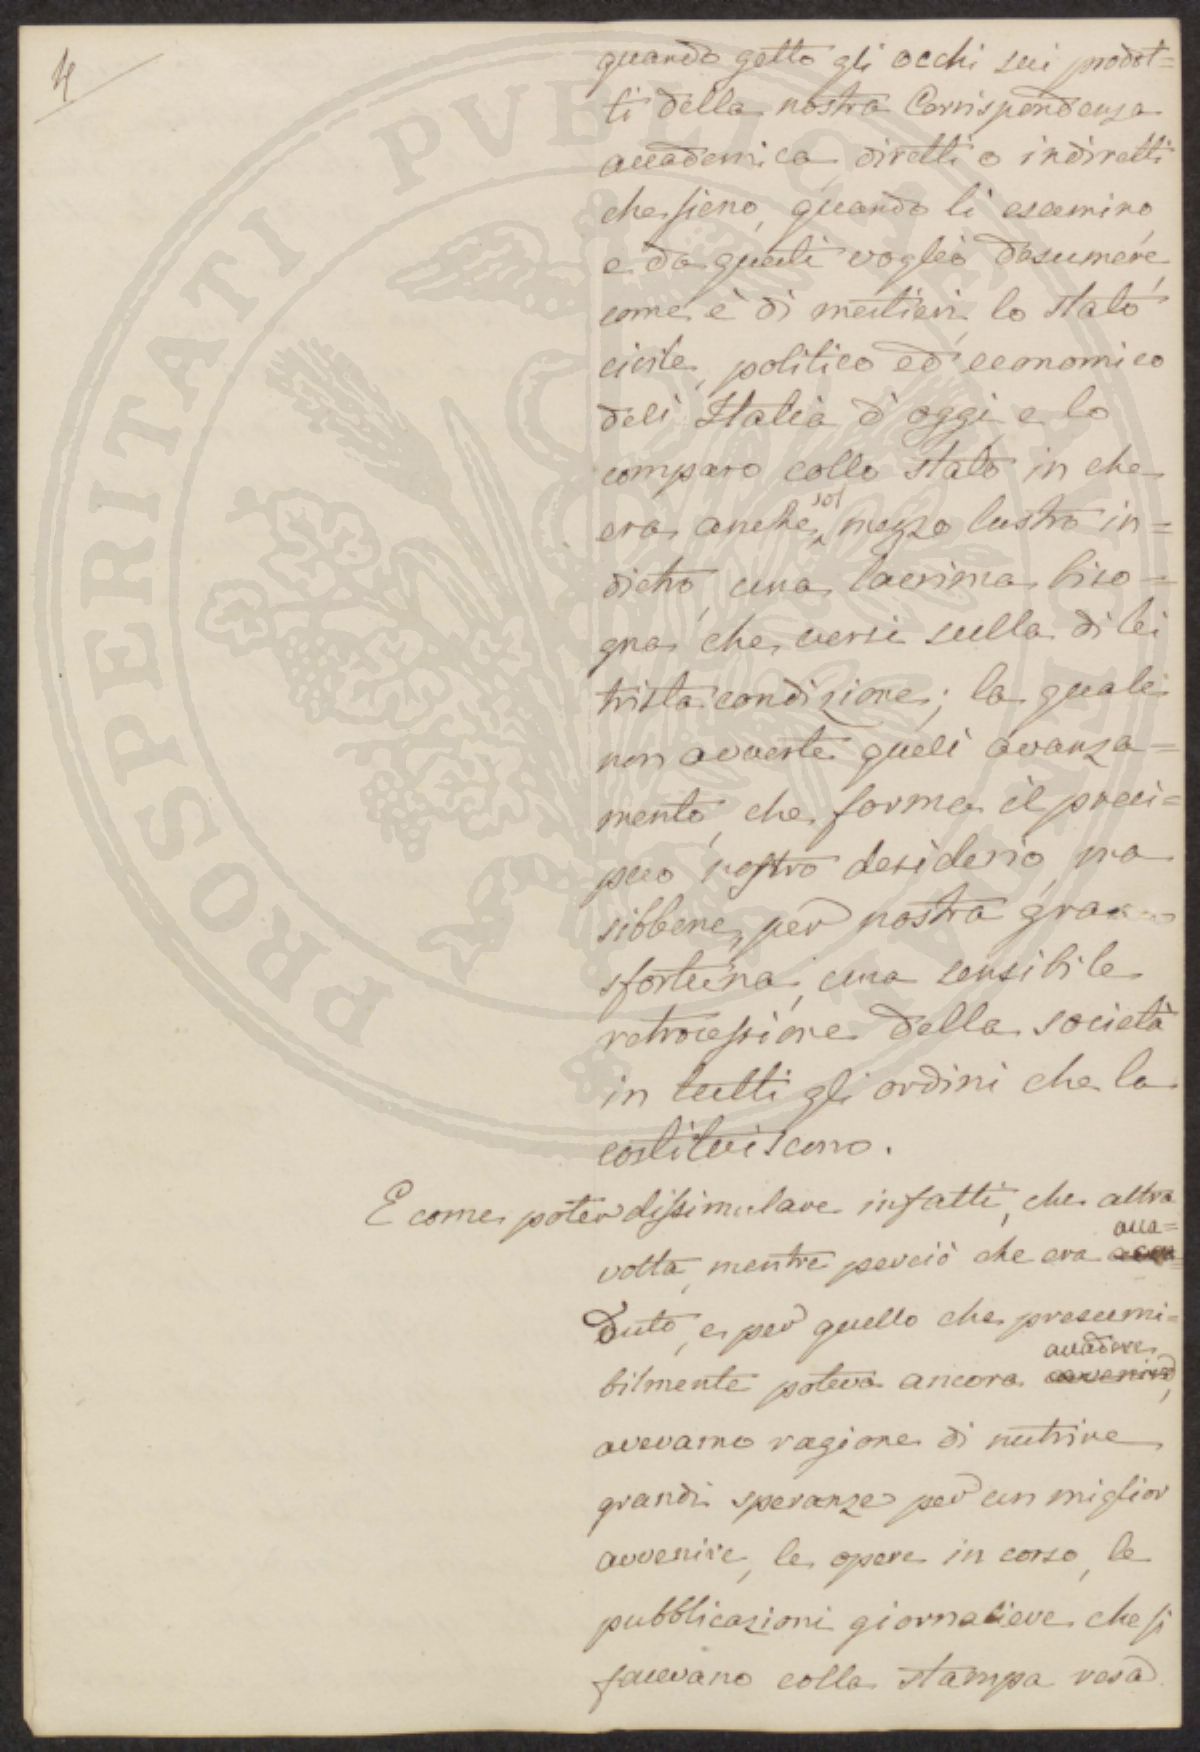 4
quando getto gli occhi sui prodot=
ti della nostra Corrispondenza
accademica, diretti o indiretti
che sieno, quando li esamino,
e da questi voglio desumere,
come è di mestieri, lo stato
civile, politico ed economico
dell'Italia d'oggi, e lo
comparo collo stato in che
era anche sol mezzo lustro in=
dietro, una lacrima biso=
gna che versi sulla di lei
trista condizione; la quale
non avverte quell'avanza=
mento, che forma il preci=
puo nostro desiderio, ma
sibbene, per nostra gran
sfortuna, una sensibile
retrocessione della società
in tutti gli ordini che la
costituiscono.
E come poter dissimulare infatti, che altra
volta, mentre perciò che era acca=
duto, e per quello che presumi=
bilmente poteva ancora accadere,
avevamo ragione di nutrire
grandi speranze per un miglior
avvenire, le opere in corso, le
pubblicazioni giornaliere che si
facevano colla stampa resa
PROSPERITATI PUBLICAE AUGENDAE